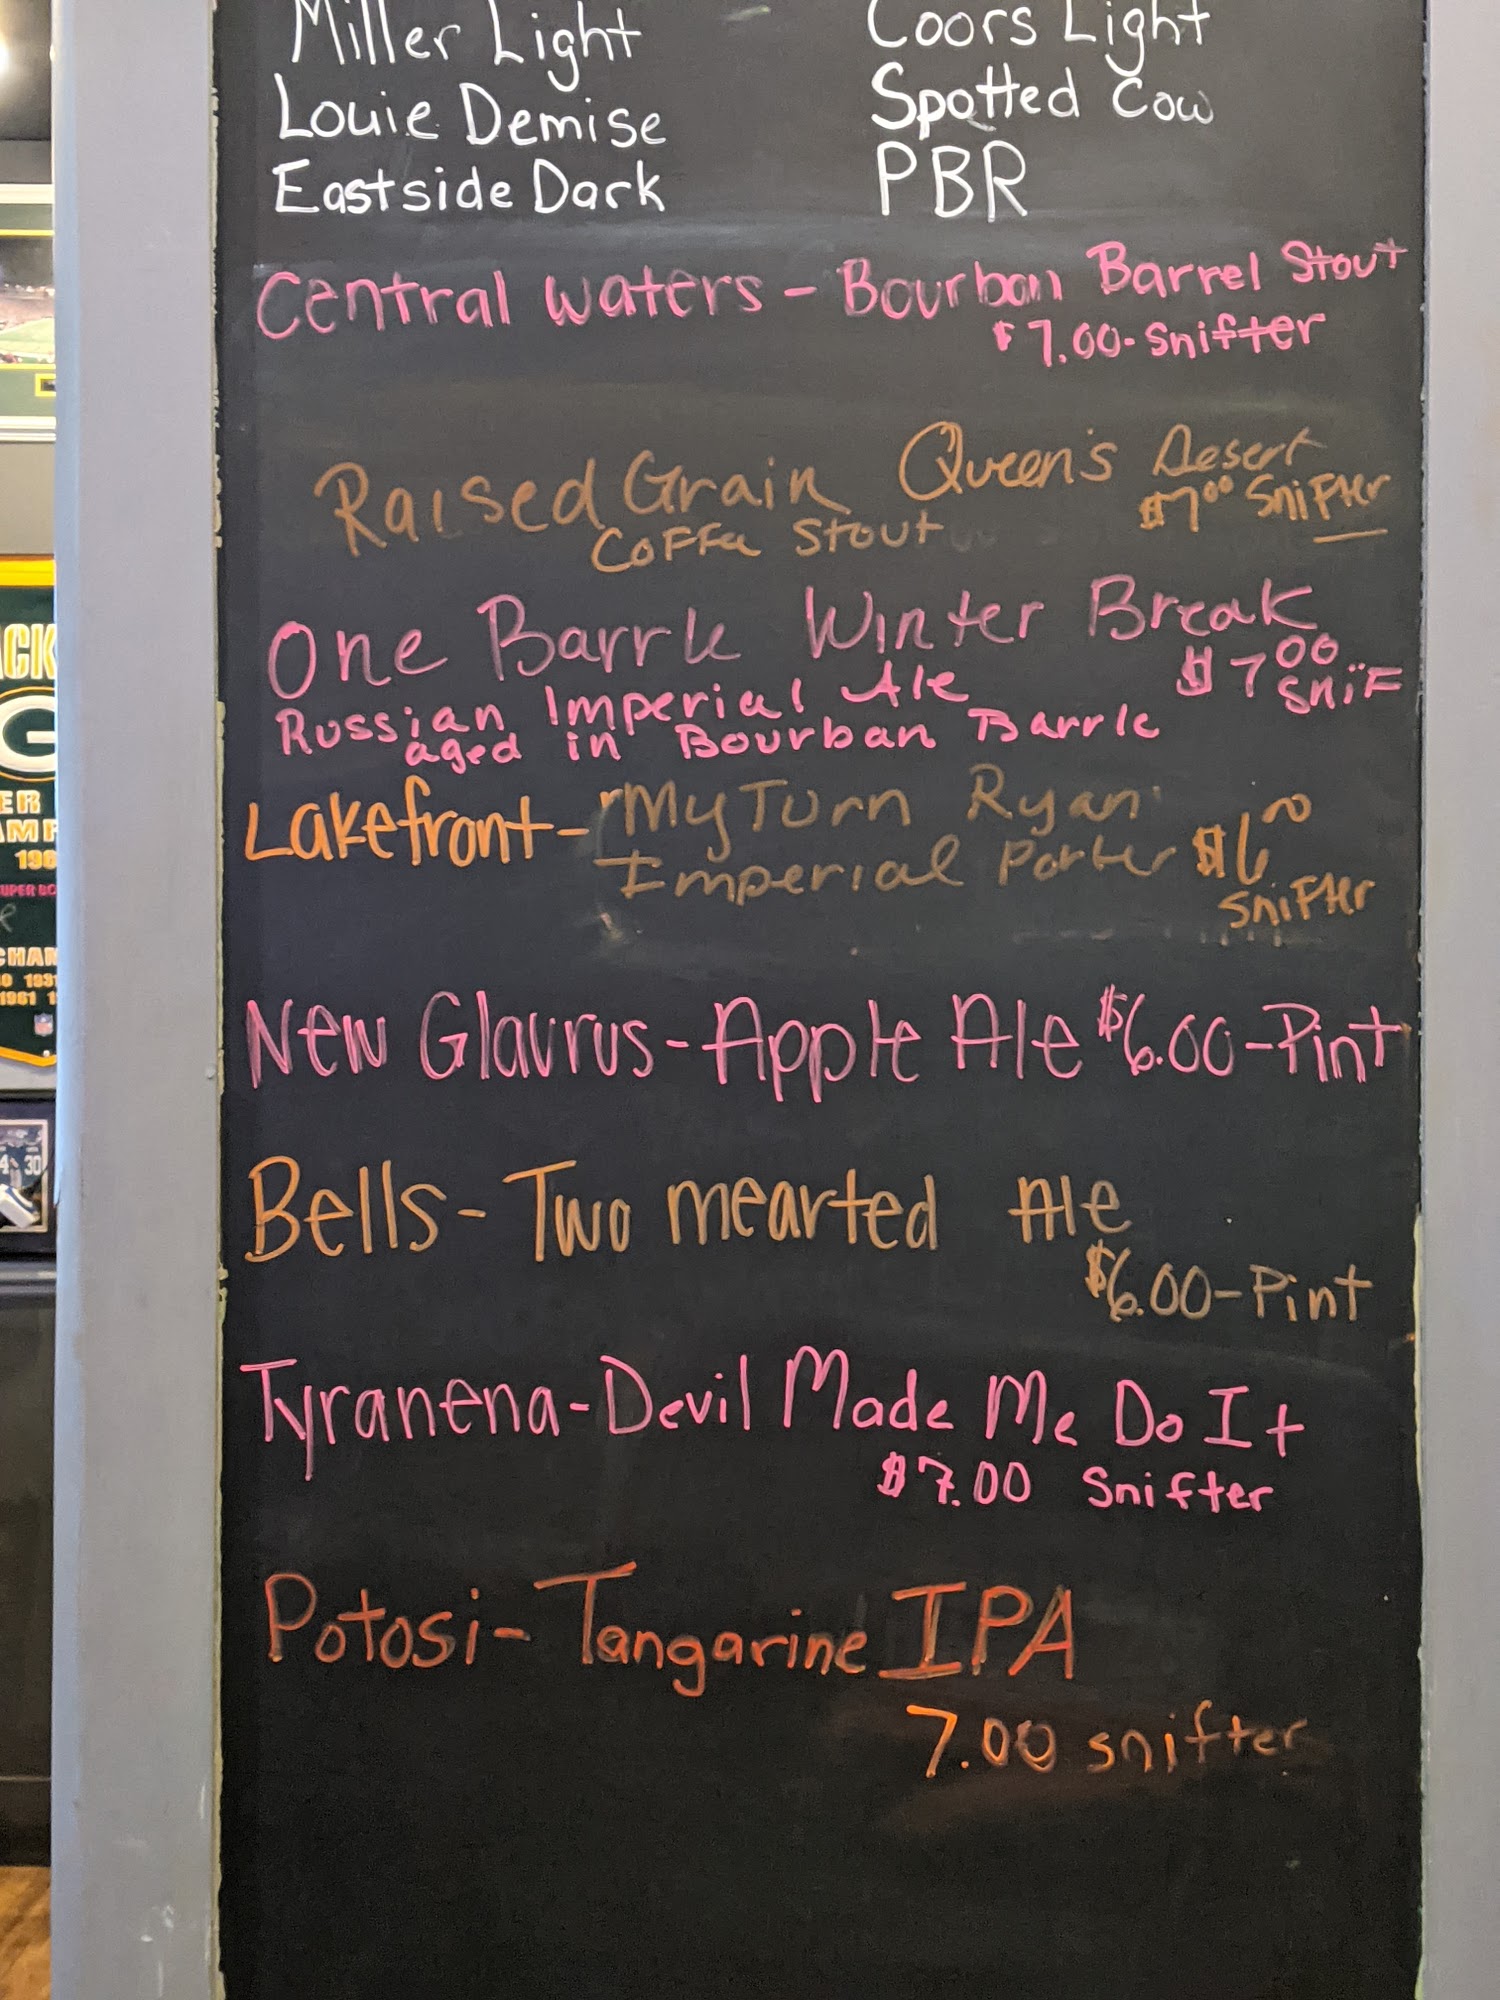 Miller Light Coors Light
Louie Demise Spotted Cow
Eastside Dark PBR
Central Waters - Bourbon Barrel Stout
$7.00 - Snifter
Raised Grain Queen's Desert
Coffee Stout $700 Snifter
One Barrle Winter Break
Russian Imperial Ale $700
aged in Bourban Barrle Snif
Lakefront - "My Turn Ryan
Imperial Porter $600
Snifter
New Glaurus - Apple Ale $6.00 - Pint
Bells - Two mearted Ale
$6.00 - Pint
Tyranena - Devil Made Me Do It
$7.00 Snifter
Potosi - Tangarine IPA
7.00 snifter
ACK
G
ER
AMP
196
SUPER BO
CHAM
1931
1961
30